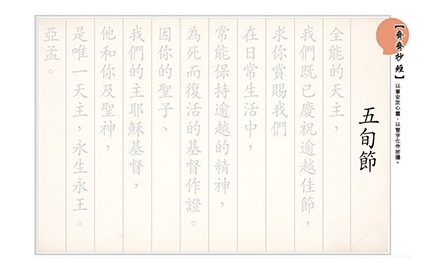 【齊齊抄經】
以筆安定心靈，以習字化作祈禱。
五旬節
全能的天主，
我們既已慶祝逾越佳節，
求你賞賜我們
在日常生活中，
常能保持逾越的精神，
為死而復活的基督作證。
因你的聖子、
我們的主耶穌基督，
他和你及聖神，
是唯一天主，永生永王。
亞孟。